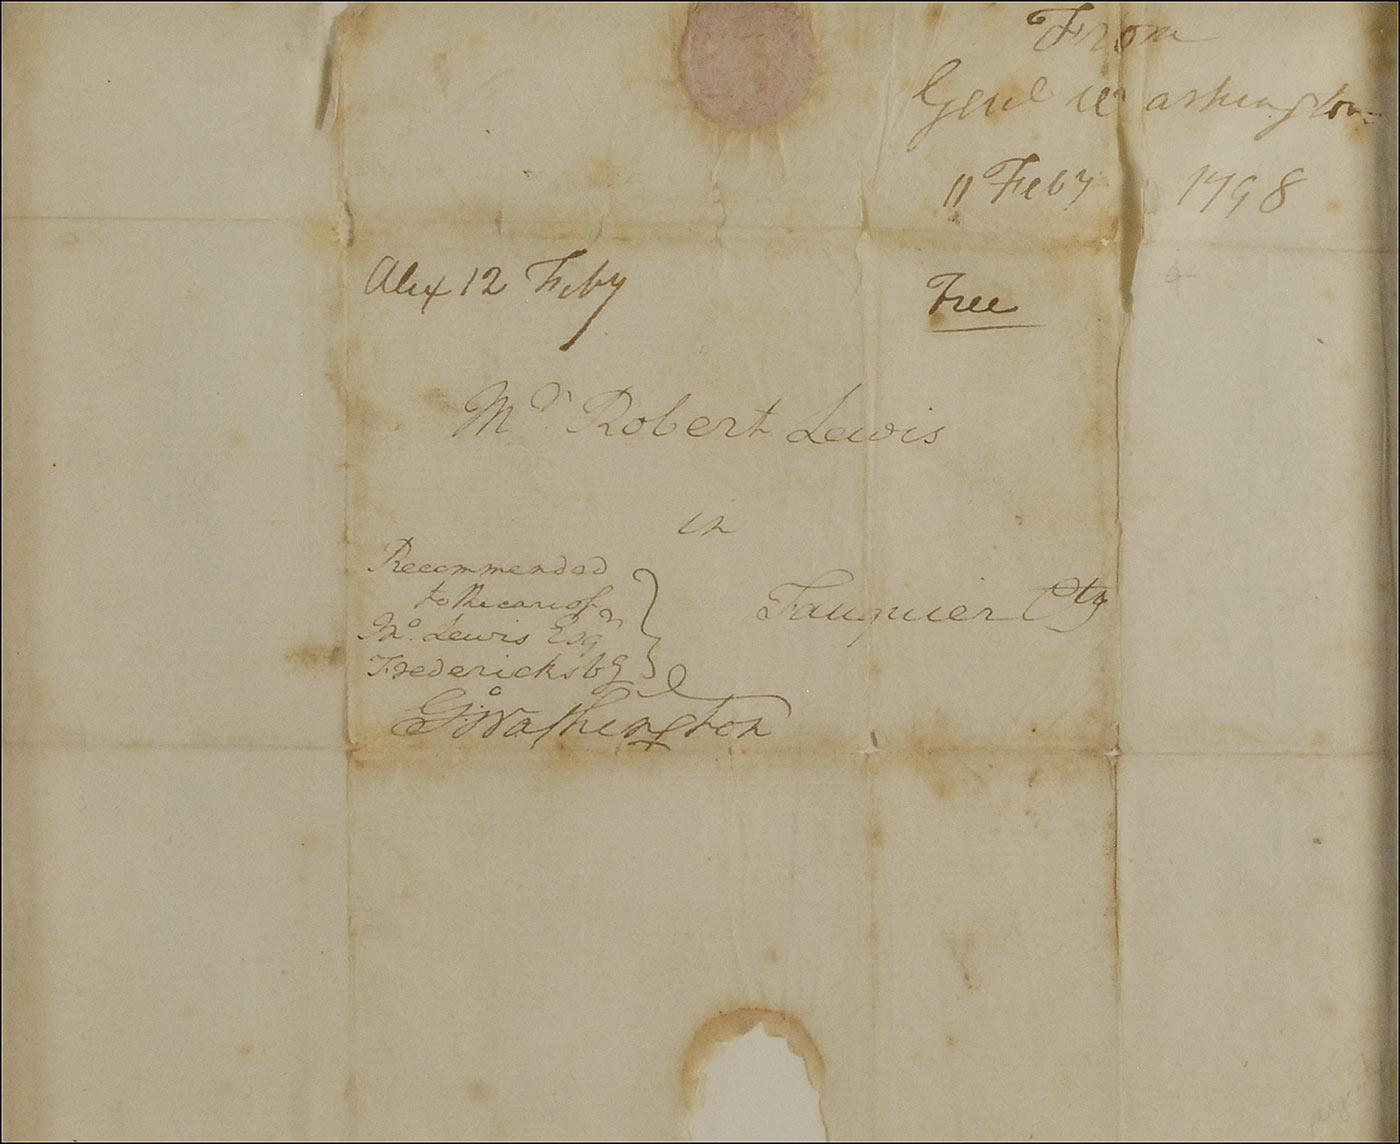 From
Genl Washington
11 Feby 1798
Alex 12 Feby
Free
Mr. Robert Lewis
in
Fauquier Cty
Recommended
to the care of
Jno. Lewis Esqr
Fredericksbg
Go: Washington